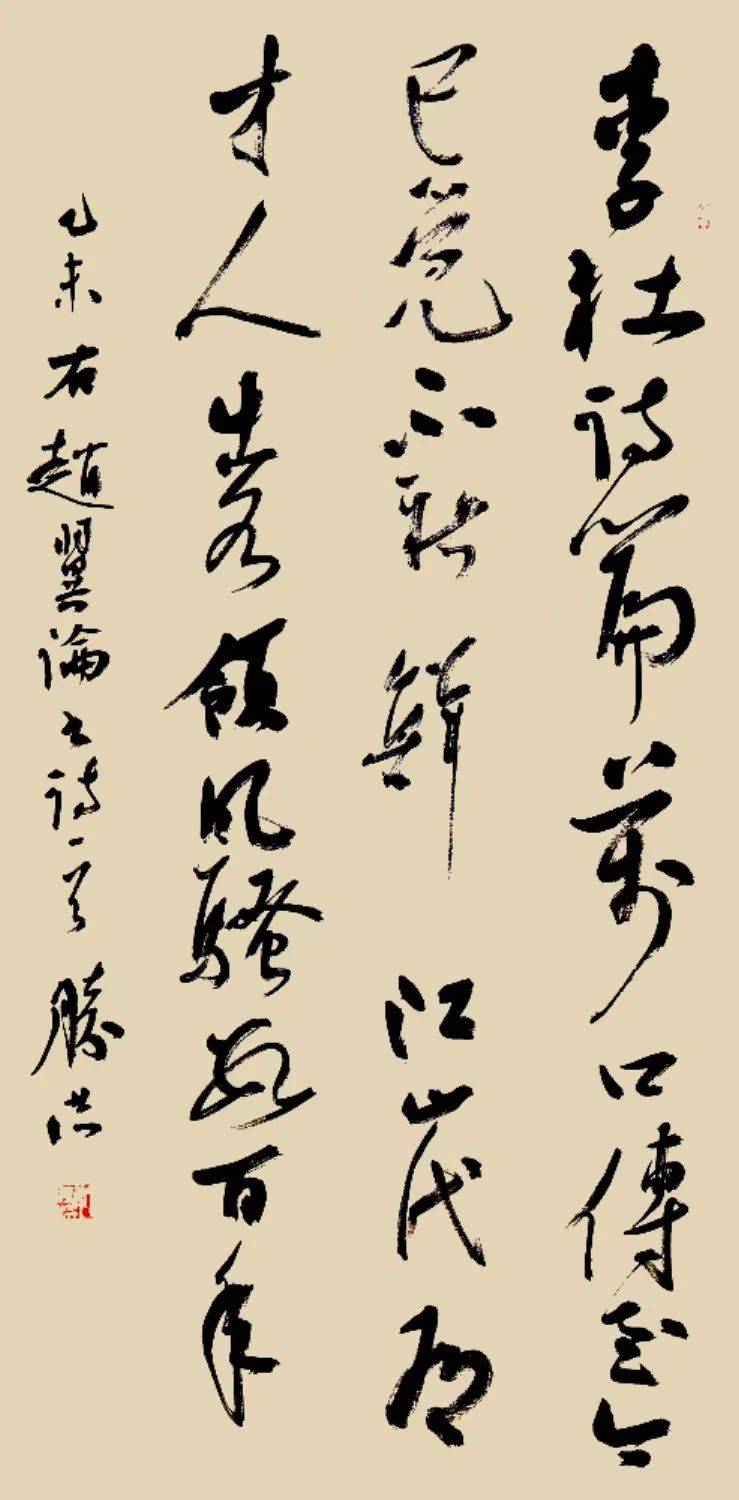 李杜诗篇萬口傳至今
已覺不新鮮江山代有
才人出各領風騷數百年
乙未右趙翼論詩一首勝洪